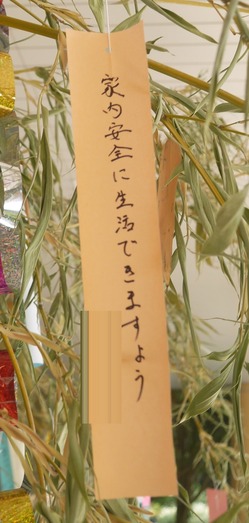 家内安全に生活できますよう